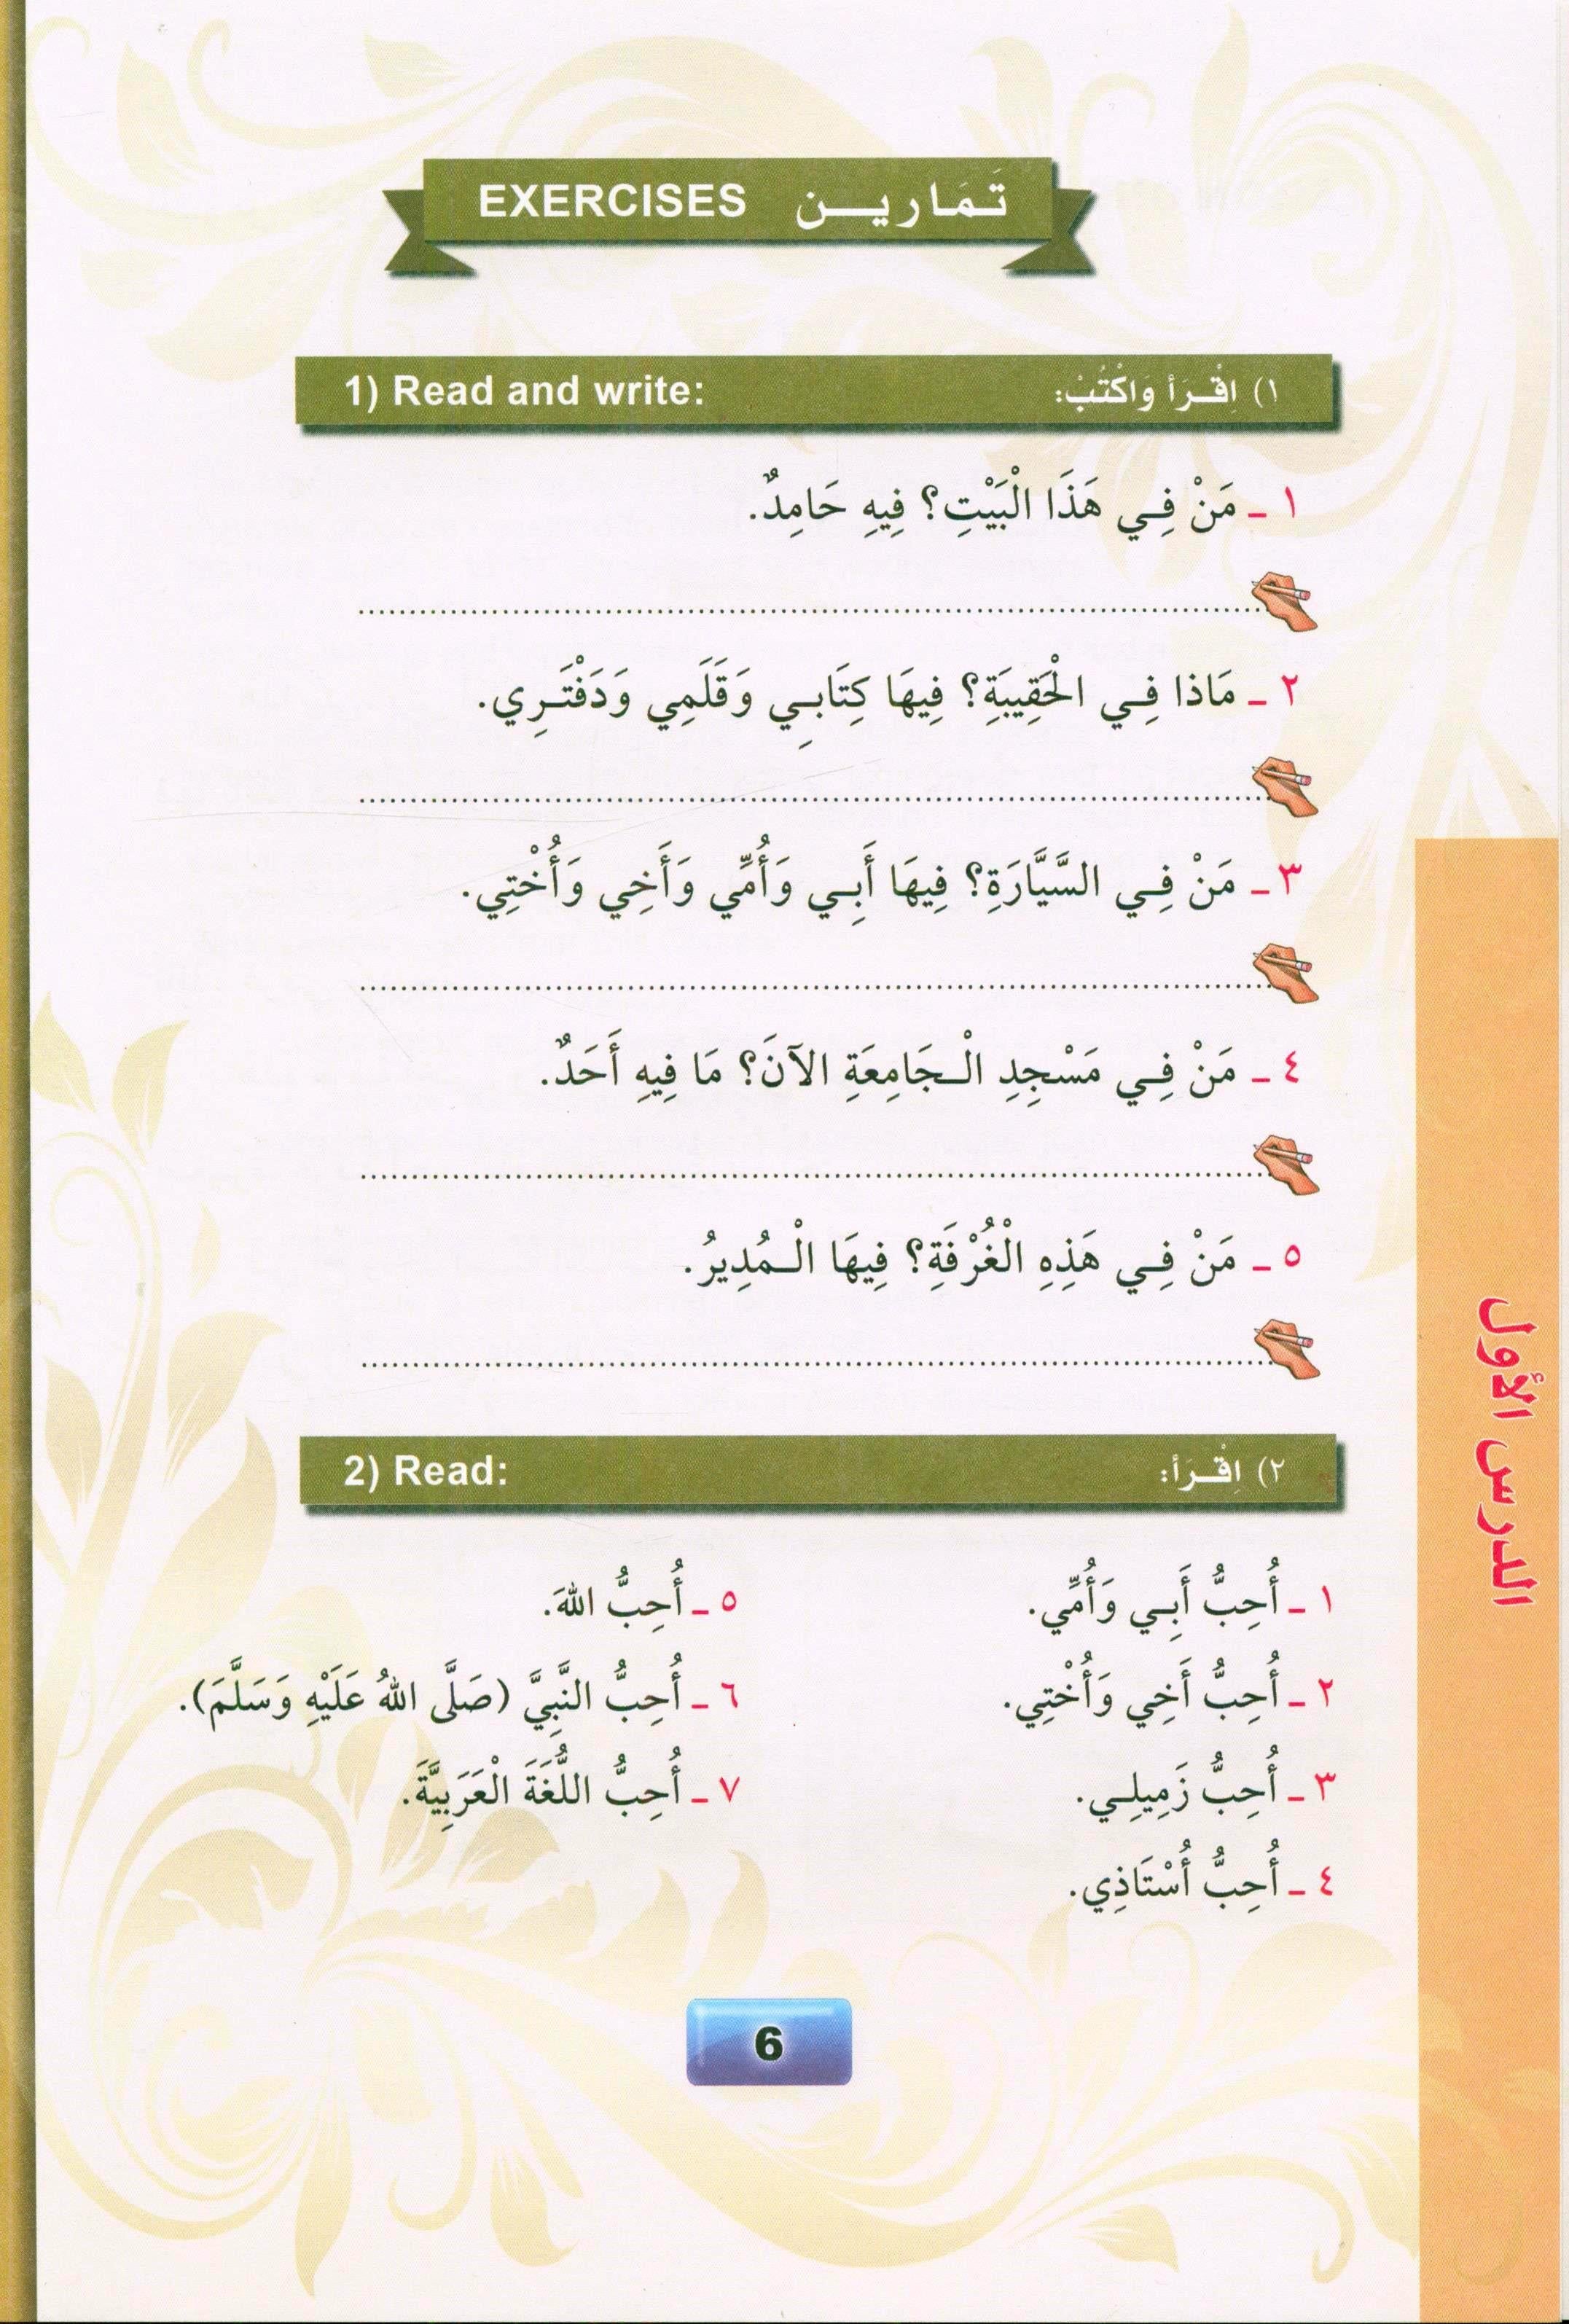 EXERCISES تَمَارِيـــن
1) Read and write: ١) اِقْـرَأ وَاكْتُبْ:
١ ـ مَنْ فِـي هَذَا الْبَيْتِ؟ فِيهِ حَامِدٌ.
٢ ـ مَاذا فِـي الْحَقِيبَةِ؟ فِيهَا كِتَابـِي وَقَلَمِي وَدَفْتَـرِي.
٣ ـ مَنْ فِـي السَّيَّارَةِ؟ فِيهَا أَبـِي وَأُمِّي وَأَخِي وَأُخْتِي.
٤ ـ مَنْ فِـي مَسْجِدِ الْـجَامِعَةِ الآنَ؟ مَا فِيهِ أَحَدٌ.
٥ ـ مَنْ فِـي هَذِهِ الْغُرْفَةِ؟ فِيهَا الْـمُدِيرُ.
2) Read: ٢) اِقْـرَأ:
١ ـ أُحِبُّ أَبـِي وَأُمِّي.
٢ ـ أُحِبُّ أَخِي وَأُخْتِي.
٣ ـ أُحِبُّ زَمِيلِـي.
٤ ـ أُحِبُّ أُسْتَاذِي.
٥ ـ أُحِبُّ اللهَ.
٦ ـ أُحِبُّ النَّبِيَّ (صَلَّى اللهُ عَلَيْهِ وَسَلَّمَ).
٧ ـ أُحِبُّ اللُّغَةَ الْعَرَبِيَّةَ.
الدرس الأول
6